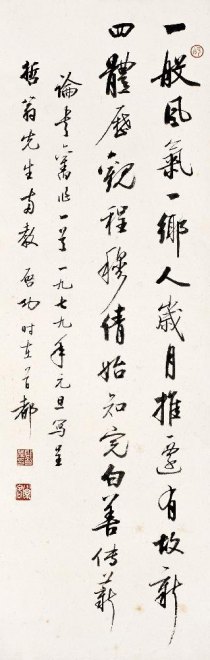 一般风氣一鄉人歲月推遷有故新
四體歷觀程穆倩始知完白善傳薪
論書舊作一首一九七九年元旦写呈
哲翁先生専教 启功时在首都